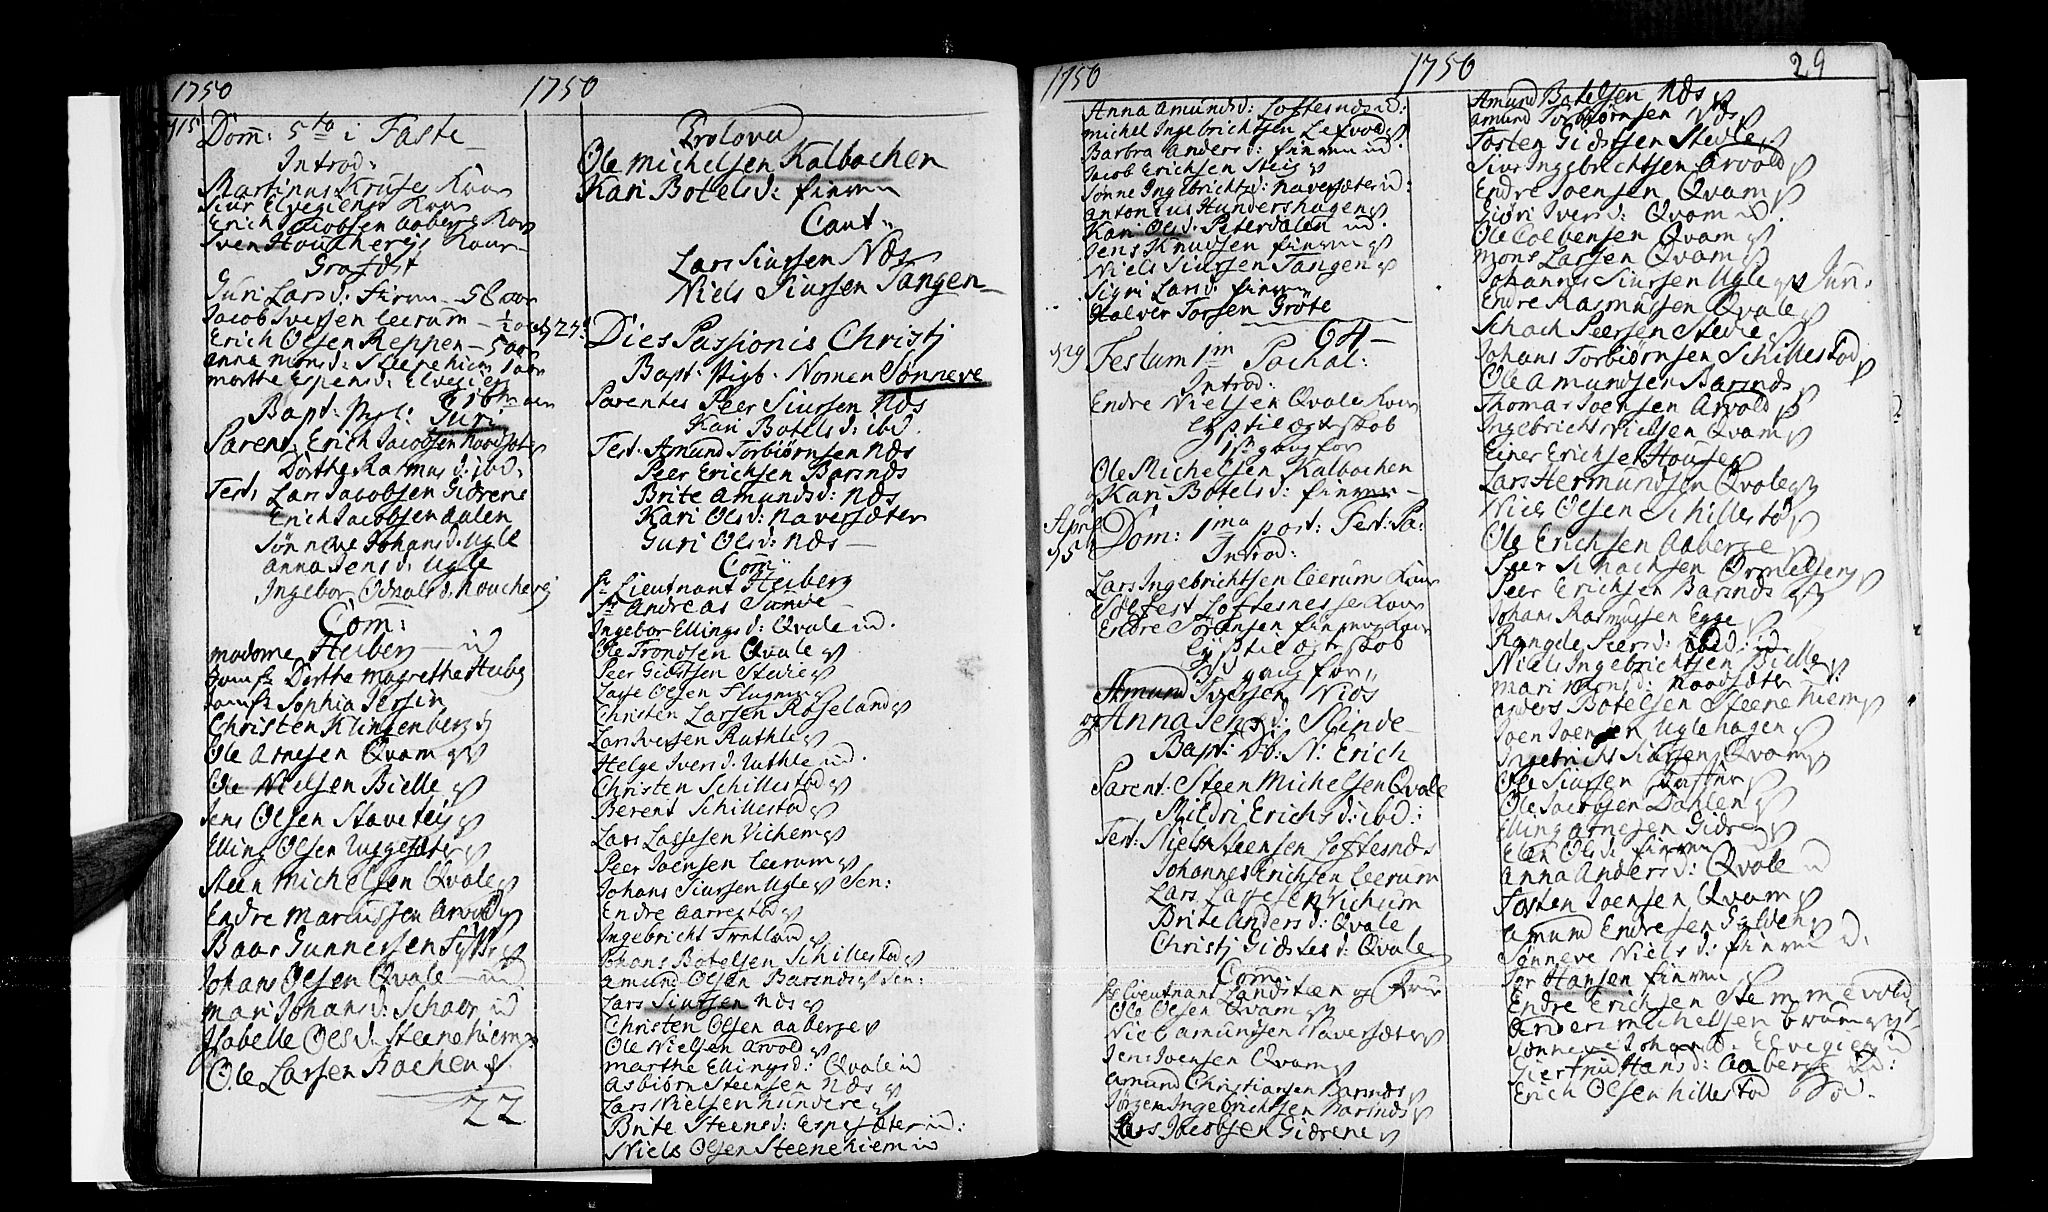 1750
1750
15 Dom: 5ta i Faste
Introd:
Martinus Kruses Kone
Siur Elvegiens Kone
Erich Jacobsen Aaberg Kone
Sven Houcherigs Kone
Grafæst
Guri Larsd: Firum
Jacob Iversen Leerum
Erich Olsen Reppen
Anna Monsd: Steenehiem
Marthe Espensd: Elvegien
Bapt: Guri
Parent: Erich Jacobsen
Dorthe Rasmusd: ibd:
Test: Lars Jacobsen Gidrene
Erich Jacobsen Aalen
Sønneve Johansd: Ugle
Anna Jensd: Ugle
Ingebor Houcherig
Com:
Madame Heiberg ud
Jomfr Dorthe Magrethe Heiberg
Jomfr Sophia Jersin
Christen Klingenberg
Ole Arnesen Qvam
Ole Nielsen Bielle
Jens Olsen Staveteig
Elling Olsen Uggesæter
Steen Michelsen Qvale
Endre Marcussen Arvold
Baar Gunnersen
Johans Olsen Qvale
Mari Johansd: Schaar ud
Isabelle Olsd: Steenehiem
Ole Larsen Bachen
22
Trolova
Ole Michelsen Kalbachen
Kari Botelsd: Finnen
Caut:
Lars Siursen Næs
Niels Siursen Tangen
25 Dies Passionis Christj
Bapt: Pigb. Nomen Sønneve
Parentes Peer Siursen Næs
Kari Botelsd: ibd.
Test. Amund Torbiørnsen Næs
Peer Erichsen Barsnæs
Brite Amundsd: Næs
Kari Olsd: Naversæter
Guri Olsd: Næs
Com
Hr Lieutnant Heiberg
Hr Andreas Sunde
Ingebor Ellingsd: Qvale ud.
Ole Trondsen Qvale
Peer Gidstsen Stedie
Lasse Olsen Flugum
Christen Larsen Roseland
Lars Iversen Ruthle
Helge Iversd: Ruthle ud.
Christen Schillestad
Berent Schillestad
Lars Lassesen Vichem
Peer Joensen Leerum
Johans Siursen Ugle Sen:
Endre Aarrestad
Ingebricht Fretland
Johans Botelsen Schillestad
Amund Olsen Barsnæs Sen:
Lars Siursen Næs
Christen Olsen Aaberge
Ole Nielsen Arvold
Marthe Ellingsd: Qvale ud
Asbiørn Steensen Næs
Lars Nielsen Hundere
Brite Steensd: Espesæter ud:
Niels Olsen Steenehiem ud
1750
1750
29
Anna Amundsd: Loftesnæs ud:
Michel Ingebrichtsen Lervold
Barbra Andersd: Finnen ud.
Jacob Erichsen Steig
Sønne Ingebrichtsd: Naversæter ud:
Antonius Hundershagen
Kari Olsd: Peterdalen ud.
Jens Knudsen Finnen
Niels Siursen Tangen
Sigri Larsd: Finnen
Halver Torsen Grøte
64
29 Festum 1m Paschal:
Introd:
Endre Nielsen Qvale Kone
Lystil ægteskab
1ste gang for
Ole Michelsen Kalbachen
og Kari Botelsd: Finnen
April 5 Dom: 1ma post: Fest: Pa:
Introd:
Lars Ingebrichtsen Leerum Kone
Solfest Loftesnes Kone
Endre Joransen Finnen Kone
Lystil ægteskab
gang for
Amund Iversen Næs
og Anna Jensd: Slinde
Bapt: D: N: Erich
Parent. Steen Michelsen Qvale
Mildri Erichsd: ibd:
Test: Niels Steensen Loftesnæs
Johannes Erichsen Leerum
Lars Lassesen Vichum
Brite Andersd: Qvale
Christj Gidstesd: Qvale
Com:
Hr Lieutnant Landstæn og Frue
Ole Olsen Qvam
Niels Amundsen Naversæter
Jens Joensen Qvam
Amund Christiansen Barsnæs
Jørgen Ingebrichtsen Barsnæs
Lars Jacobsen Gidrene
Amund Botelsen Næs
Amund Torbiørnsen Næs
Tosten Gidstsen Stedie
Siur Ingebrichtsen Arvold
Endre Joensen Qvam
Giøri Iversd: Qvam ud.
Ole Colbensen Qvam
Mons Larsen Qvam
Johannes Siursen Ugle Jun:
Endre Rasmussen Qvale
Schach Peersen Stedie
Johans Torbiørnsen Schillestad
Ole Amundsen Barsnæs
Thomas Joensen Arvold
Ingebricht Nielsen Qvam
Einer Erichsen Houge
Lars Hermundsen Qvale
Niels Olsen Schillestad
Ole Erichsen Aaberge
Peer Schachsen Ormelseng
Peer Erichsen Barsnæs
Johans Rasmussen Egge
Rangde Peersd: ibd: ud
Niels Ingebrichtsen Bielle
Mari Monsd: Noodsæter
Anders Botelsen Steenehiem
Joen Joensen Uglehagen
Ingebricht Siursen Qvam
Ole Siursen
Ole Jacobsen Dahlen
Elling Arnesen Gidrene
Elen Olsd: Finnen
Anna Andersd: Qvale ud
Tosten Joensen Qvam
Amund Endresen Eylden
Sønneve Nielsd: Finnen ud.
Tor Hansen Finnen
Endre Erichsen Stemmevold
Anders Michelsen Qvam
Sønneve Johansd: Elvegien ud
Giertrud Hansd: Aaberge ud:
Erich Olsen Hillestad